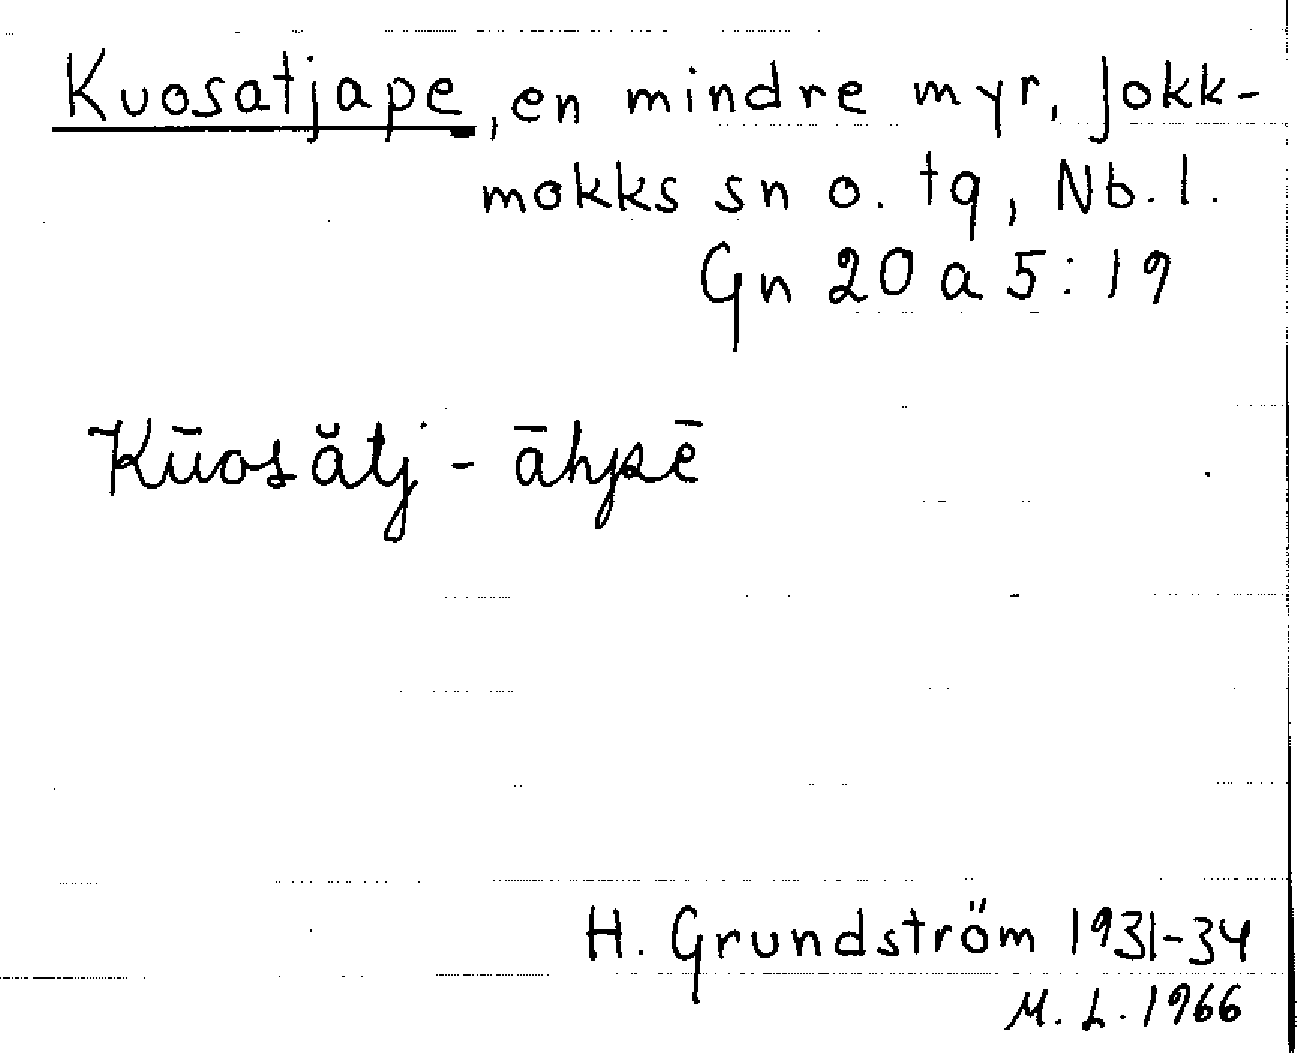 Kuosatjape, en mindre myr, Jokk-
mokks sn o. tg, Nb. l.
Gn 20 a 5:19
Kūosătj - āhpē
H. Grundström 1931-34
M. L. 1966